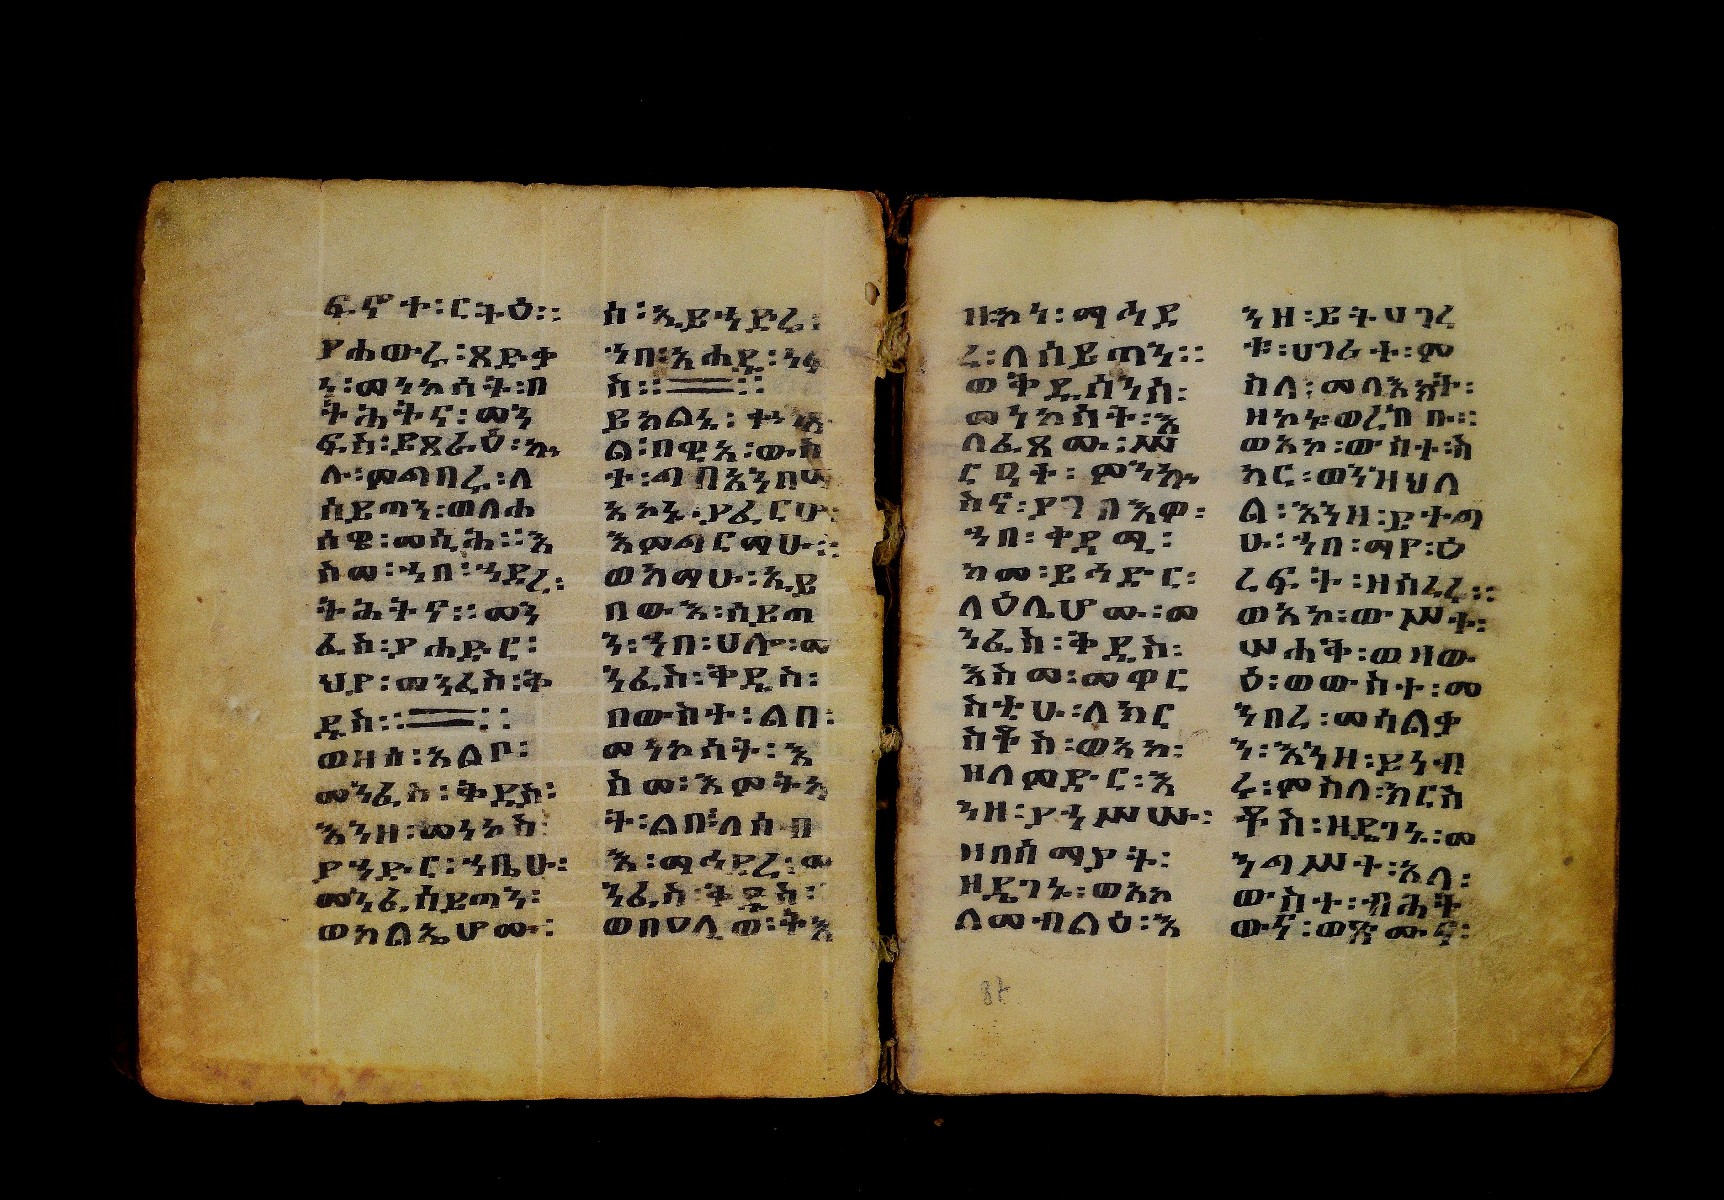 ፍኖተ፡ርትዕ።
የሐውሩ፡ጸድቃ
ን፡መነኮሳት፡በ
ትሕትና፡መን
ፍስ፡ይጸራዕ፡ኵ
ሉ፡መግበሩ፡ለ
ሰይጣን፡ወለሐ
ሰዌ፡መሲሕ፡፡እ
ስመ፡ኀበ፡ኀደረ፡
ትሕትና፡፡መን
ፈስ፡ያሐድር፡
ህየ፡መንፈስ፡ቅ
ዱስ፡፡
ወዘሰ፡አልቦ፡
መንፈስ፡ቅዱስ፡
እንዘ፡መነኮስ፡
ያኀድር፡ኀቤሁ፡
መንፈ፡ሰይጣን፡
ወአልኤሆሙ፡
ሰ፡ኢይኀድሩ፡
ኀበ፡አሐዱ፡ነፍ
ስ፡፡
ይክልኑ፡
ል፡በዊአ፡ውስ
ተ፡ጣበእንበሠ
እኮኑ፡ያፈርሆ፡
እምጣርማሁ፡፡
ወእማሁ፡ኢይ
በውእ፡ሰይጣ
ን፡ኀበ፡ሀሎ፡መ
ንፈስ፡ቅዱስ፡
በውስተ፡ልበ፡
መነኮሳት፡እ
ስመ፡እምትእ
ት፡ልበ፡ለሰብ
እ፡ማኅደረ፡መ
ንፈስ፡ቅዱስ፡
ወበዕሊወ፡ትእ
ዘኮነ፡ማኅደ
ረ፡ለሰይጣን፡፡
ወቅዱሳንሰ፡
መነኮሳት፡እ
ለፈጸሙ፡ሥ
ርዓተ፡ምንኵ
ስና፡ያገብእዎ፡
ኀበ፡ቀዳሚ፡
ከመ፡ይኅድር፡
ላዕሌሆሙ፡መ
ንፈስ፡ቅዱስ፡
እስመ፡መዋር
ስቲሁ፡ለክር
ስቶስ፡ወአኮ፡
ዘለምድር፡እ
ንዘ፡ያንሥሡ፡
ዘበሰማያት፡
ዘይገኑ፡ወአኮ
ለመብልዕ፡እ
ንዘ፡ይትሀገረ
ቱ፡ሀገራት፡ም
ስለ፡መላእክት፡
ዘኮኑ፡ወረከቡ፡፡
ወአኮ፡ውስተ፡ሕ
ኣር፡ወንዝህለ
ል፡እንዘ፡ይተጣ
ሁ፡ኀበ፡ማየ፡ዕ
ረፍት፡ዘሰረረ፡፡
ወአኮ፡ውሥተ፡
ሠሐቅ፡ወዛው
ዕ፡ወውስተ፡መ
ንበረ፡መሳልቃ
ን፡እንዘ፡ይነብ
ሩ፡ምስለ፡ክርስ
ቶስ፡ዘይገኑ፡መ
ንግሥተ፡አላ፡
ውስተ፡ብሕት
ውና፡ወጽሙና፡
87